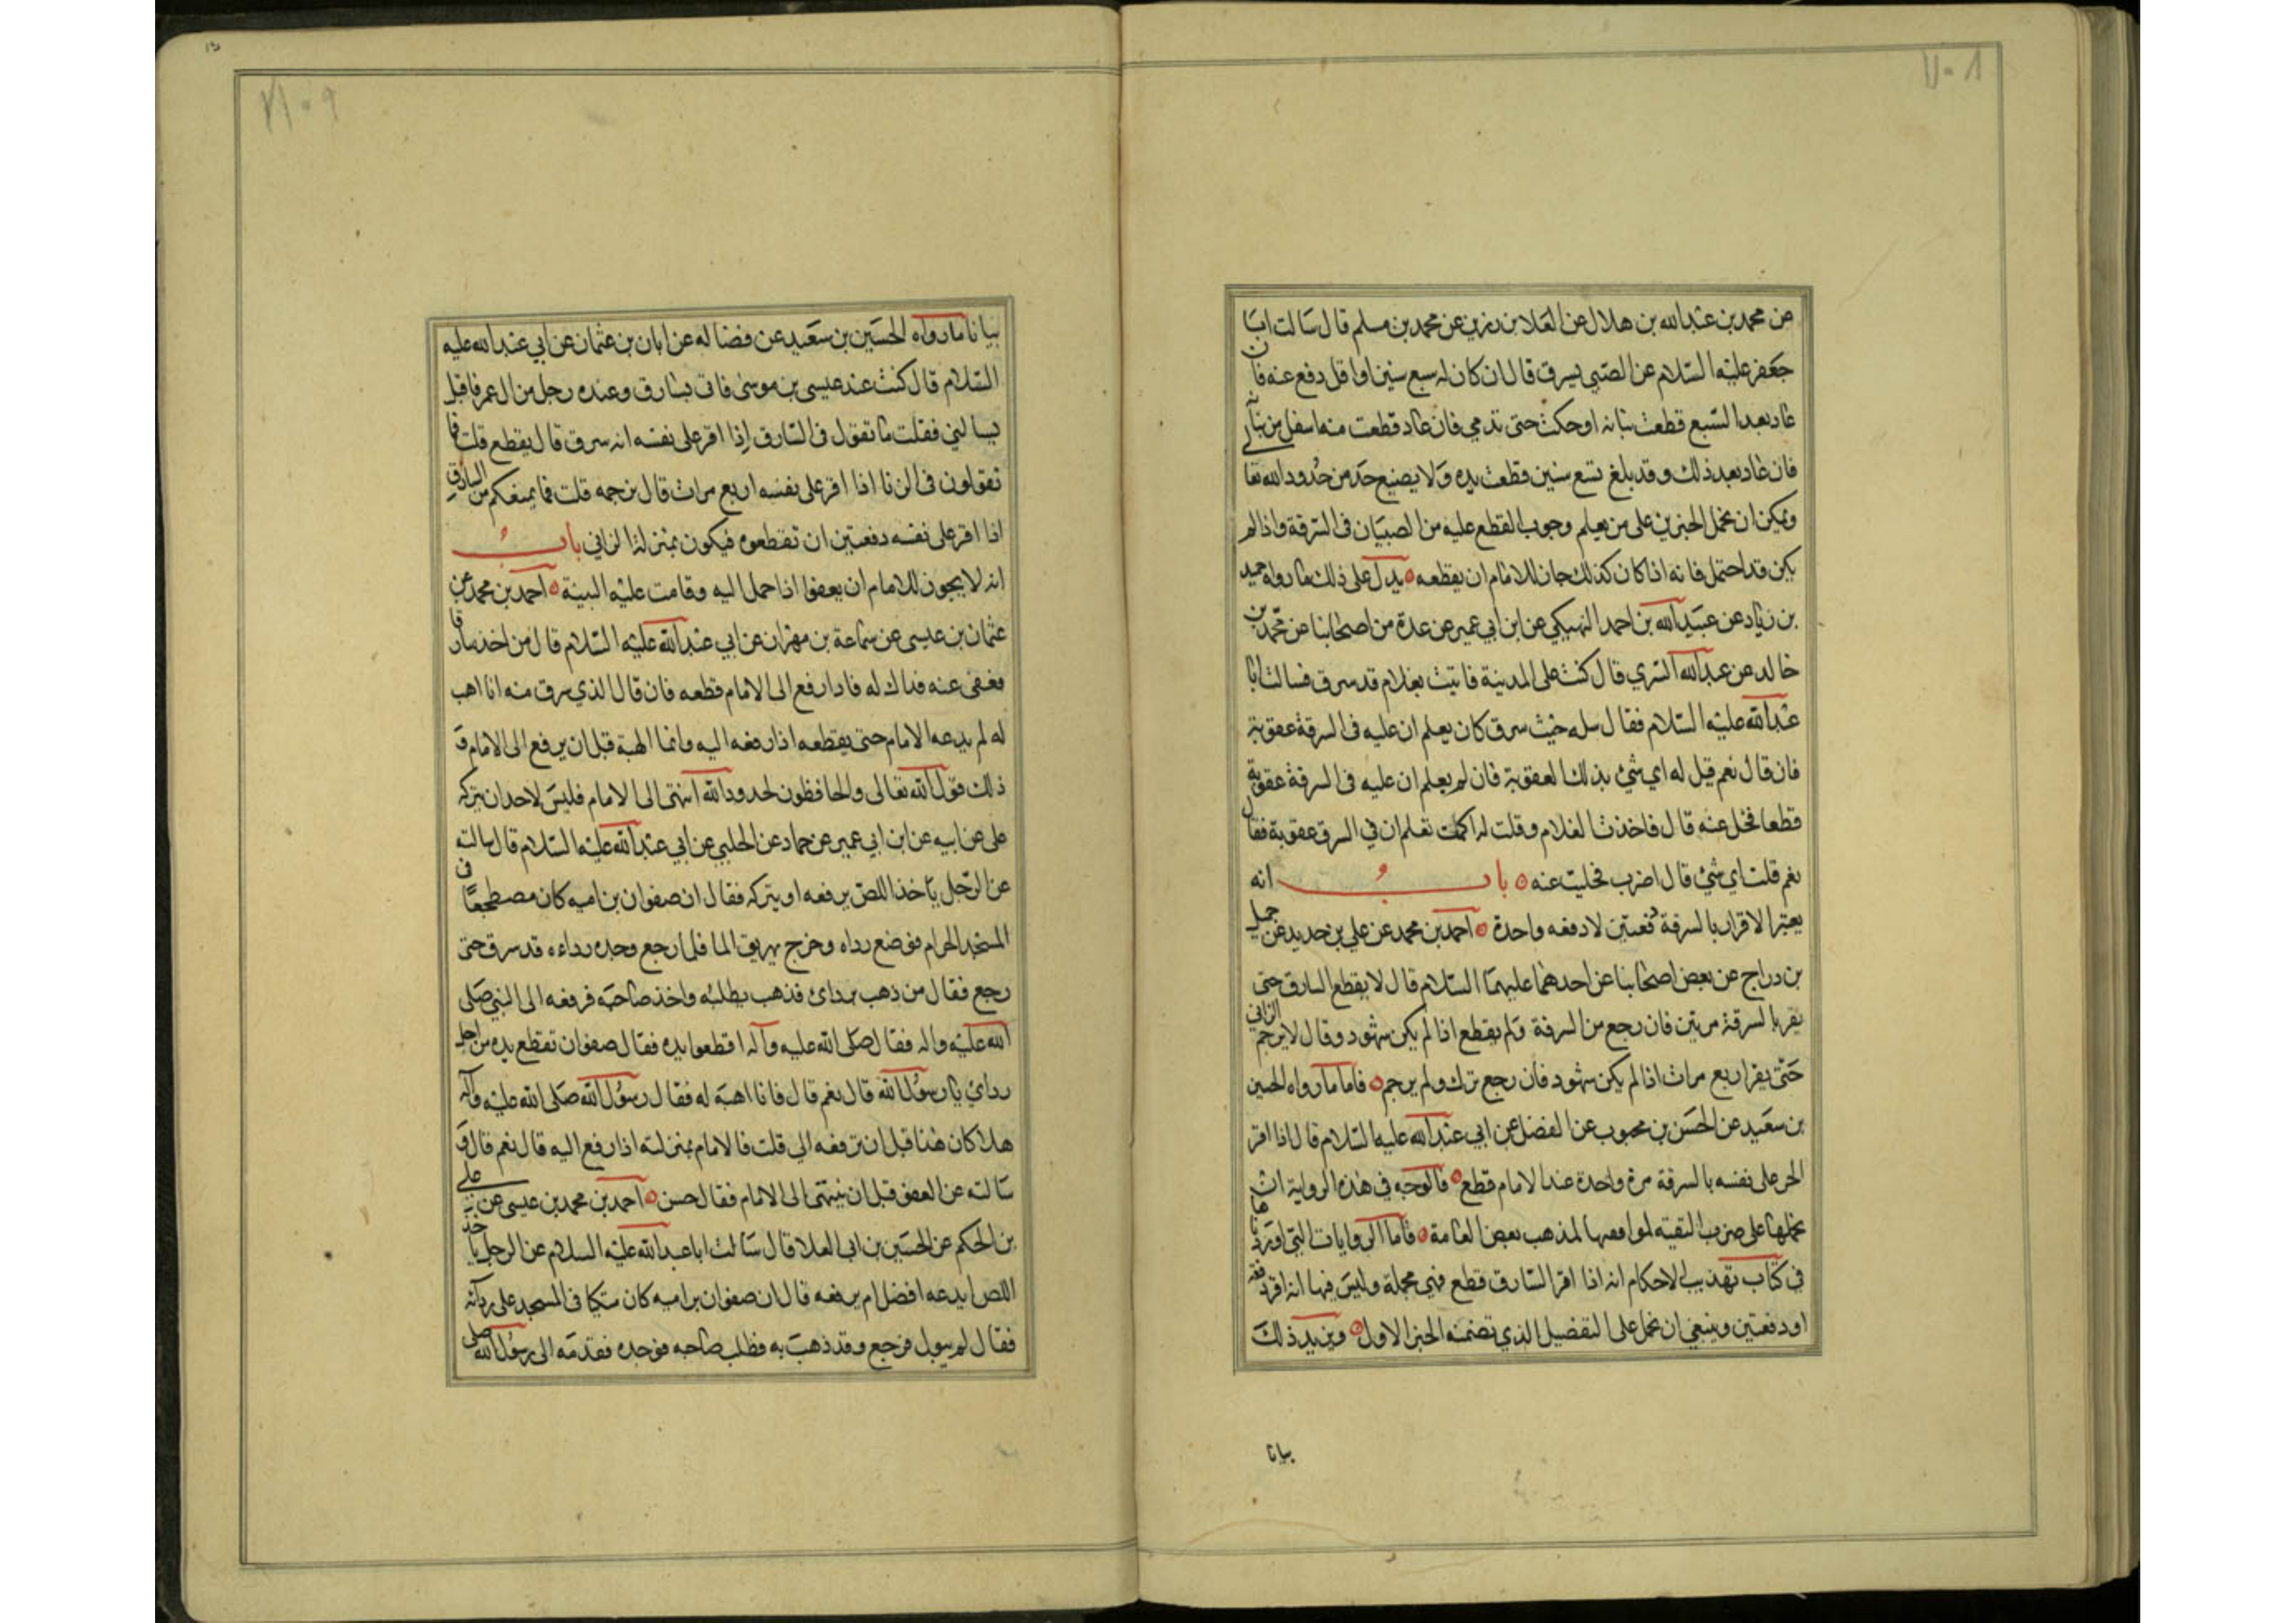 ٧٠٨
من محمد بن عبدالله بن هلال عن العلا بن رزين عن محمد بن مسلم قال سالت ابا
جعفر عليه السلام عن الصبي يسرق قال ان كان له سبع سنين او اقل دفع عنه فان
عاد بعد السبع قطعت بنانه او حكت حتى تدمي فان عاد قطعت منه اسفل من بنانه
فان عاد بعد ذلك و قد بلغ تسع سنين قطعت يده ولا يضيع حد من حدود الله تعالى
ويمكن ان يحمل الخبرين على من يعلم وجوب القطع عليه من الصبيان في السرقة واذا لم
يكن قد احتمل فانه اذا كان كذلك جاز للامام ان يقطعه يدل على ذلك ما رواه حميد
بن زياد عن عبيدالله بن احمد النهيكي عن ابن ابي عمير عن عدة من اصحابنا عن محمد بن
خالد عن عبدالله السري قال كنت على المدينة فاتيت بغلام قد سرق فسالت ابا
عبدالله عليه السلام فقال سله حيث سرق كان يعلم ان عليه في السرقة عقوبة
فان قال نعم قيل له اي شئ بذلك العقوبة فان لم يعلم ان عليه في السرقة عقوبة
قطعا فخل عنه قال فاخذت الغلام وقلت له اكنت تعلم ان في السرق عقوبة فقال
نعم قلت اي شئ قال اضرب فخليت عنه باب انه
يعتبر الاقرار بالسرقة دفعتين لا دفعه واحدة احمد بن محمد عن علي بن حديد عن جميل
بن دراج عن بعض اصحابنا عن احدهما عليهما السلام قال لا يقطع السارق حتى
يقر بالسرقة مرتين فان رجع من السرقة ولم يقطع اذا لم يكن شهود وقال لا يرجم الزاني
حتى يقر اربع مرات اذا لم يكن شهود فان رجع ترك ولم يرجم فاما ما رواه الحسين
بن سعيد عن الحسن بن محبوب عن الفضل عن ابي عبدالله عليه السلام قال اذا اقر
الحر على نفسه بالسرقة مرة واحدة عند الامام قطع فالوجه في هذه الرواية ان
نحملها على ضرب التقيه لموافقتها لمذهب بعض العامة فاما الروايات التي اوردناها
في كتاب تهذيب الاحكام انه اذا اقر السارق قطع فهي مجملة وليس فيها انه اقر دفعه
او دفعتين وينبغي ان نحمل على التفصيل الذي تضمنه الخبر الاول ويزيد ذلك
بيانا
٧٠٩
بيانا ما رواه الحسين بن سعيد عن فضاله عن ابان بن عثمان عن ابي عبدالله عليه
السلام قال كنت عند عيسى بن موسى فاتى بسارق وعنده رجل من ال عمر فاقبل
يسالني فقلت ما تقول في السارق اذا اقر على نفسه انه سرق قال يقطع قلت فما
تقولون في الزنا اذا اقر على نفسه اربع مرات قال نرجمه قلت فما يمنعكم من السارق
اذا اقر على نفسه دفعتين ان تقطعوه فيكون بمنزلة الزاني باب
انه لا يجوز للامام ان يعفو اذا حمل اليه وقامت عليه البينة احمد بن محمد عن
عثمان بن عيسى عن سماعة بن مهران عن ابي عبدالله عليه السلام قال من اخذ سارقا
فعفى عنه فذاك له فاذا رفع الى الامام قطعه فان قال الذي سرق منه انا اهب
له لم يدعه الامام حتى يقطعه اذا رفعه اليه وانما الهبة قبل ان يرفع الى الامام و
ذلك قول الله تعالى والحافظون لحدود الله انتهى الى الامام فليس لاحد ان يتركه
على عن ابيه عن ابن ابي عمير عن حماد عن الحلبي عن ابي عبدالله عليه السلام قال سالته
عن الرجل ياخذ اللص يرفعه او يتركه فقال ان صفوان بن اميه كان مضطجعا في
المسجد الحرام فوضع رداه وخرج يهريق الما فلما رجع وجد رداءه قد سرق حتى
رجع فقال من ذهب بردائ فذهب يطلبه واخذ صاحبه فرفعه الى النبي صلى
الله عليه واله فقال صلى الله عليه وآله اقطعوا يده فقال صفوان تقطع يده من اجل
رداي يا رسول الله قال نعم قال فانا اهبه له فقال رسول الله صلى الله عليه وآله
هلا كان هذا قبل ان ترفعه الي قلت فالامام بمنزلته اذا رفع اليه قال نعم قال و
سالته عن العفو قبل ان ينتهى الى الامام فقال حسن احمد بن محمد بن عيسى عن علي
بن الحكم عن الحسين بن ابي العلا قال سالت ابا عبدالله عليه السلام عن الرجل ياخذ
اللص ايدعه افضل ام يرفعه قال ان صفوان بن اميه كان متكيا في المسجد على ردائه
فقال له يبول فرجع وقد ذهب به فطلب صاحبه فوجده فقدمه الى رسول الله صلى